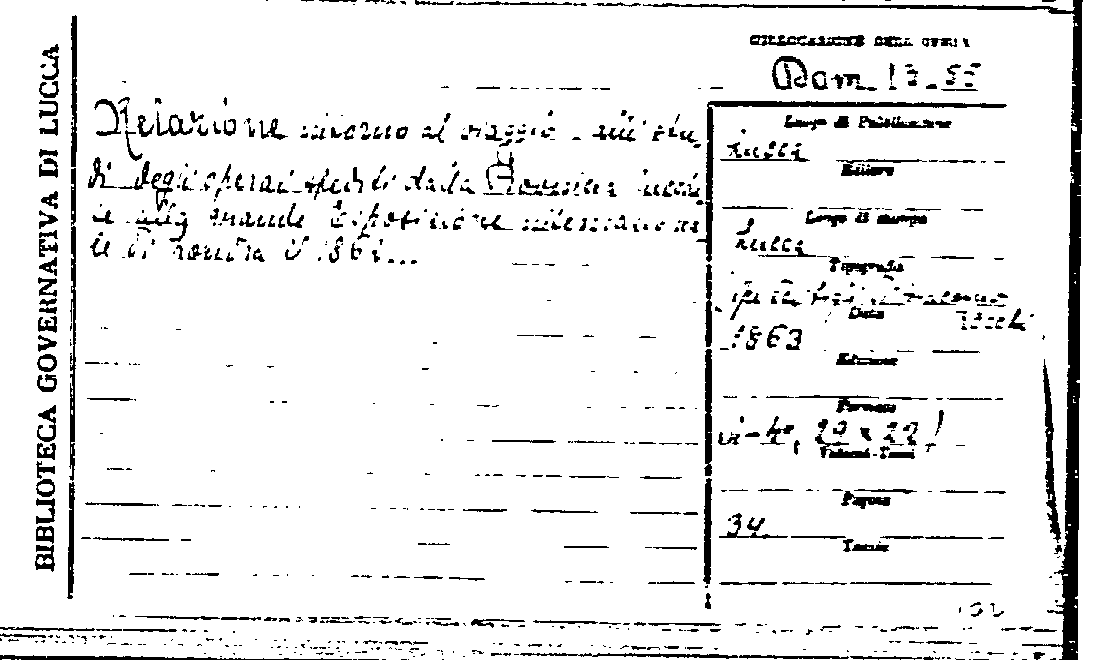 BIBLIOTECA GOVERNATIVA DI LUCCA
COLLOCAZIONE DELL'OPERA
Dom. 13.55
Relazione intorno al viaggio e agli stu,
di degli operai spediti dalla Provincia lucche,
se alla grande Esposizione internaziona,
le di Londra il 186
Luogo di Pubblicazione
Lucca
Editore
Luogo di stampa
Lucca
Tipografia
Data
1863
Edizione
Formato
in-4°, 29 x 22
Volumi-Tomi
Pagine
34.
Tavole